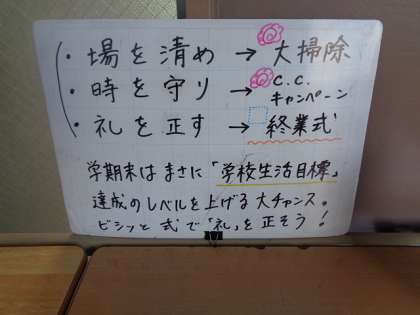 ・場を清め → 大掃除
・時を守り → C.C.キャンペーン
・礼を正す → 終業式
学期末はまさに「学校生活目標」
達成のレベルを上げる大チャンス。
ビシッと式で「礼」を正そう!